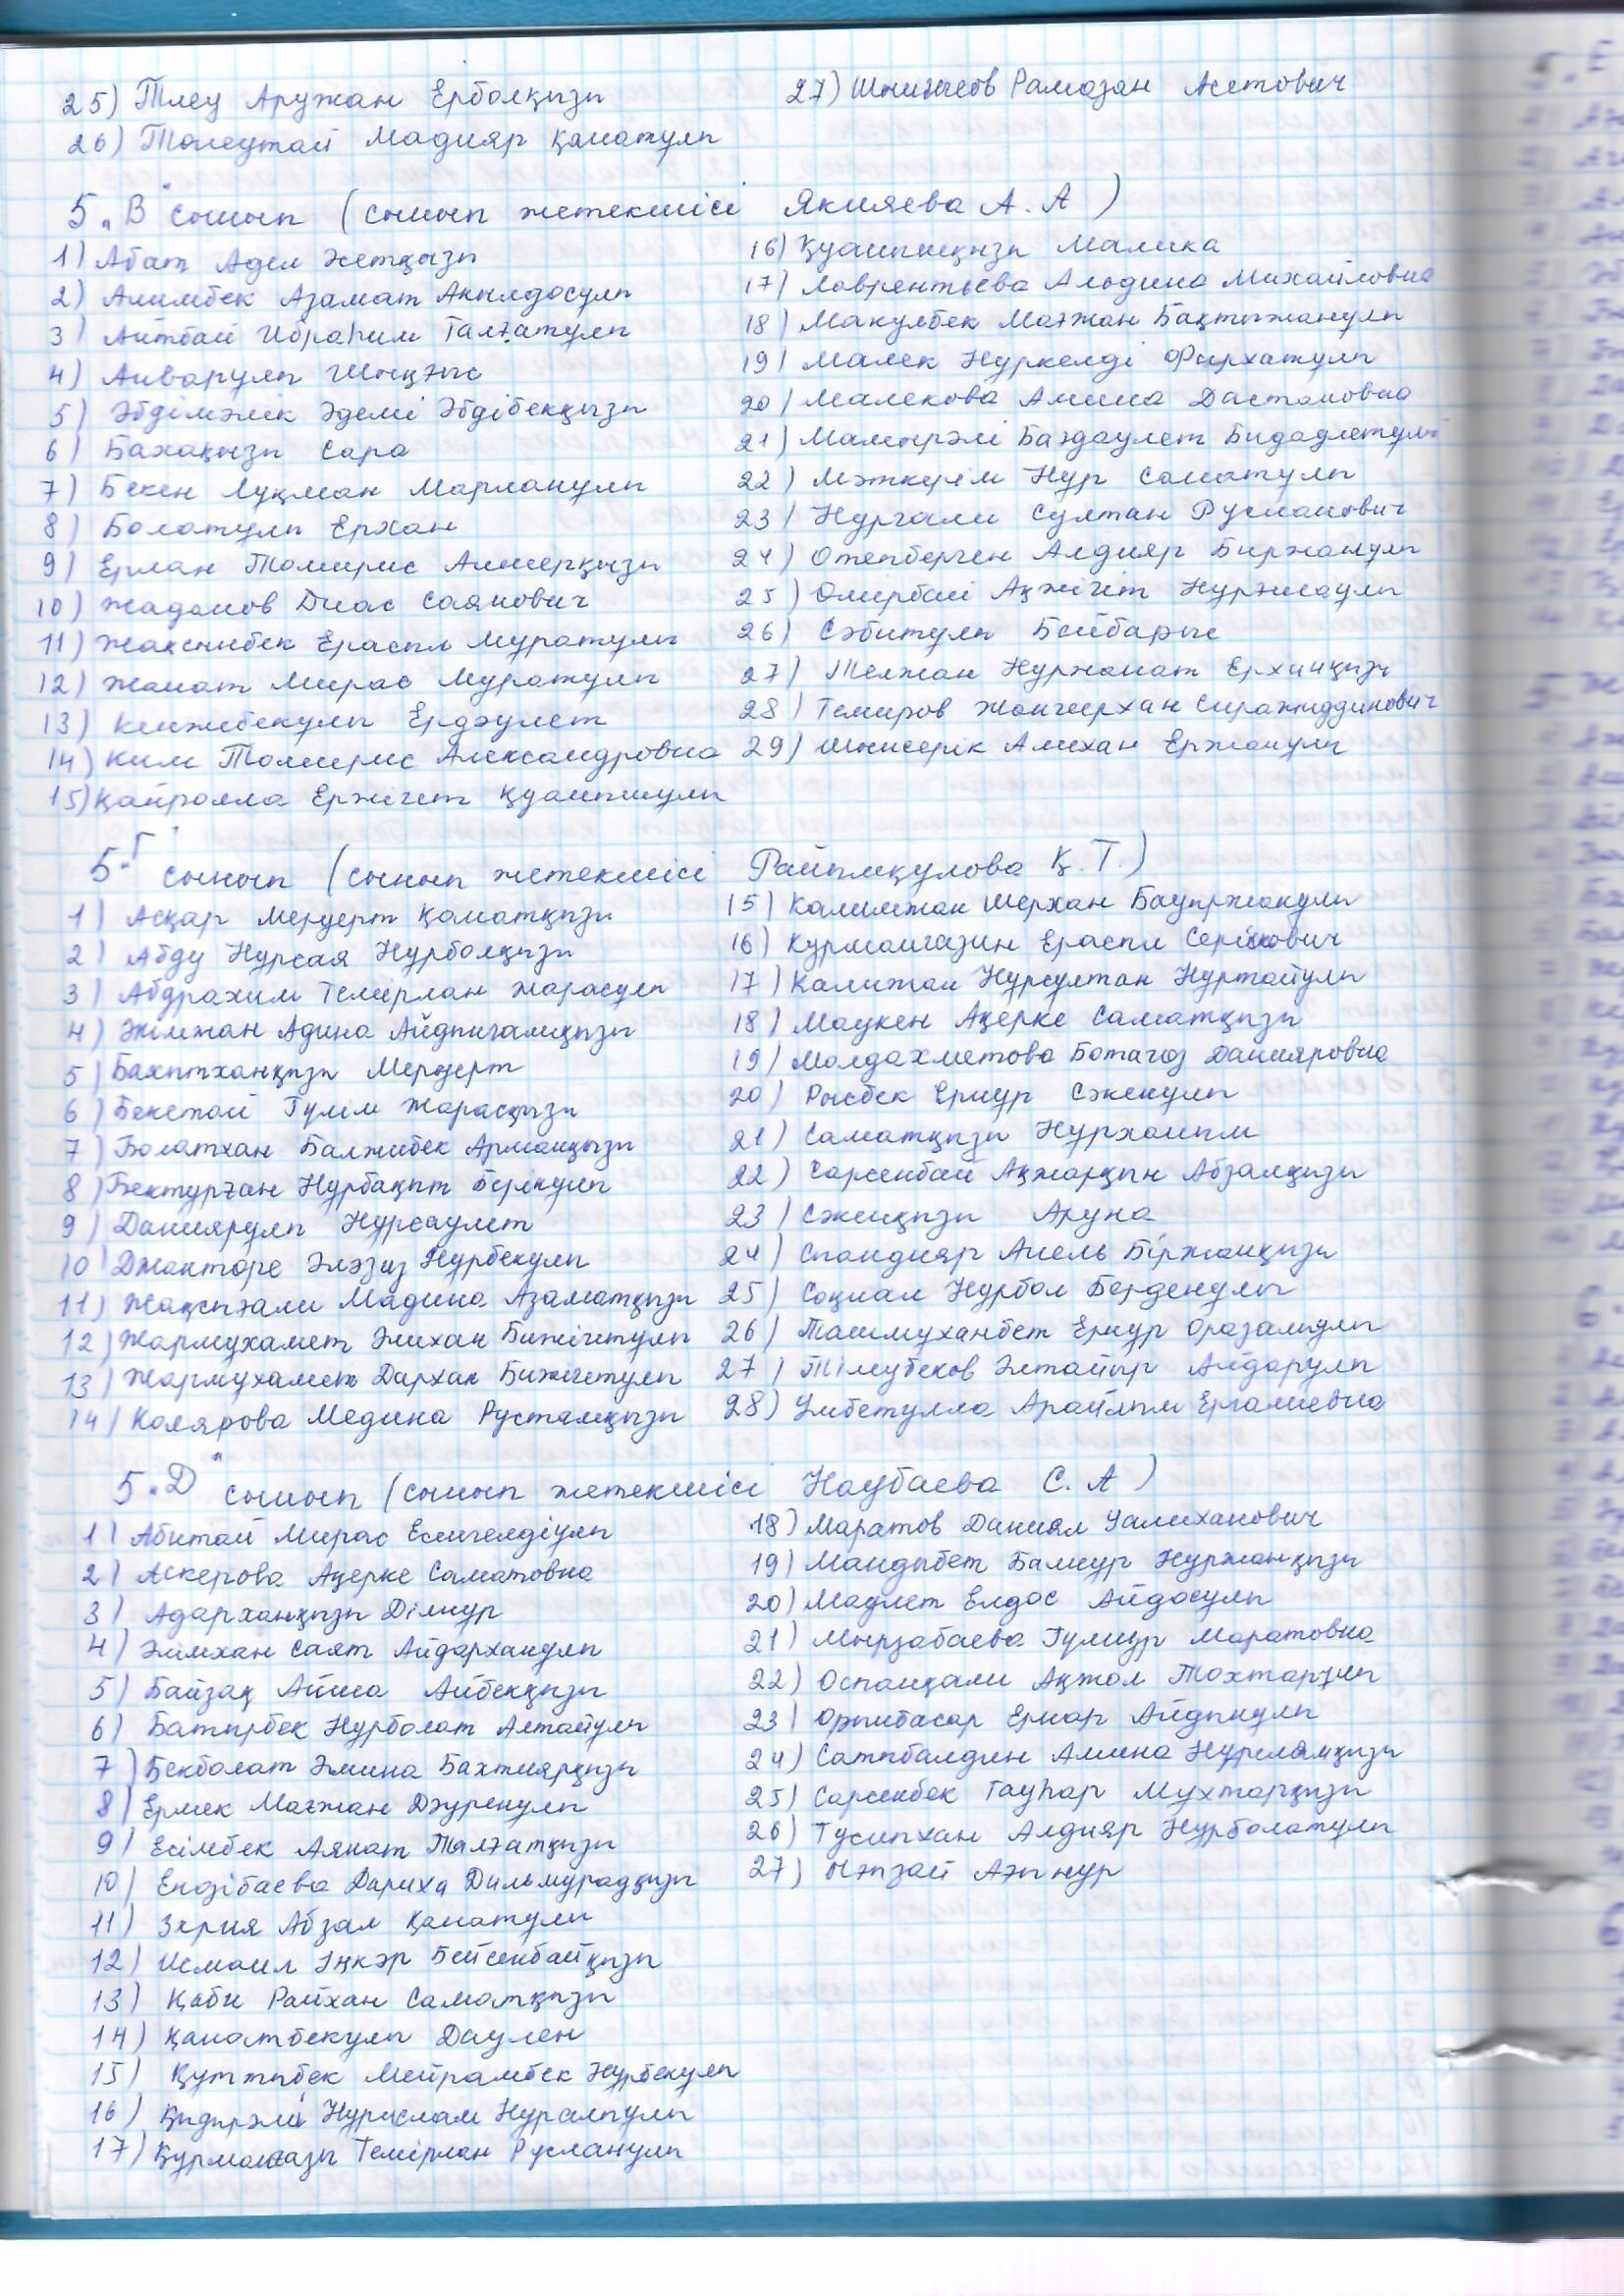 25) Тлеу Аружан Ерболқызы
26) Төлеутай Мадияр Қанатұлы
27) Шыныбеов Рамазан Асетович
5 "В" сынып (сынып жетекшісі Якияева А. А)
1) Абат Адел Әсетқызы
2) Алимбек Азамат Ақылдосұлы
3) Айтбай Ибраһим Талғатұлы
4) Анварұлы Шыңғыс
5) Әбдімәлік Әдемі Әбдібекқызы
6) Бахақызы Сара
7) Бекен Луқман Марланұлы
8) Болатұлы Ерхан
9) Ерлан Томирис Алшерқызы
10) Жаданов Диас Саянович
11) Жақсыбек Ерасыл Муратұлы
12) Жанат Мирас Муратұлы
13) Кенжебекұлы Ердәулет
14) Ким Томирис Александровна
15) Қайролла Ержігет Қуанышұлы
16) Қуанышқызы Малика
17) Лаврентьева Альдина Михайловна
18) Макулбек Мағжан Бақтыжанұлы
19) Малек Нұркелді Фархатұлы
20) Маликова Амина Дастановна
21) Мамырәлі Баздәулет Бидәулетұлы
22) Мәткәрім Нұр Саматұлы
23) Нурғали Султан Русланович
24) Отепберген Алдияр Биржанұлы
25) Омирбай Ақжігіт Нұржаұлы
26) Сәбитұлы Бейбарыс
27) Телжан Нұржанат Ерхинқызы
28) Темиров Жангирхан Сиражиддинович
29) Шынсерік Алихан Ержанұлы
5 "Г" сынып (сынып жетекшісі Райымқұлова Қ. Т.)
1) Асқар Меруерт Қанатқызы
2) Абду Нұрсая Нұрболқызы
3) Абдрахим Темирлан Жарасұлы
4) Әлімжан Адина Айдынғалиқызы
5) Бахытханқызы Меруерт
6) Бекетай Гүлім Жарасқызы
7) Болатхан Балжибек Арманқызы
8) Бектурған Нұрбақыт Берікұлы
9) Даниярұлы Нұрсаулет
10) Джанторе Әләзиз Нұрбекұлы
11) Жақсығали Мадина Азаматқызы
12) Жармухамет Әлихан Бижігітұлы
13) Жармухамет Дархан Бижігетұлы
14) Калярова Медина Рустамқызы
15) Калимжан Шерхан Бауыржанұлы
16) Курмангазин Ерасыл Серікович
17) Калижан Нұрсұлтан Нұртайұлы
18) Маукен Ақерке Саматқызы
19) Молдахметова Ботагоз Данияровна
20) Рысбек Ернұр Сәкенұлы
21) Саматқызы Нұрханым
22) Сарсенбай Ақжарқын Абзалқызы
23) Сәкенқызы Аруна
24) Спандияр Анель Біржанқызы
25) Социал Нұрбол Берденұлы
26) Ташмуханбет Ернұр Оразалыұлы
27) Тілеубеков Әлтайыр Айдарұлы
28) Умбетулла Арайлым Ергалиевна
5 "Д" сынып (сынып жетекшісі Наубаева С. А)
1) Абитай Мирас Есенгелдіұлы
2) Аскерова Ақерке Саматовна
3) Адарханқызы Ділнұр
4) Әлімхан Саят Айдарханұлы
5) Байзақ Айша Айбекқызы
6) Батырбек Нұрболат Алтайұлы
7) Бекболат Әмина Бахтиярқызы
8) Ермек Мағжан Дәуренұлы
9) Есімбек Аянат Талғатқызы
10) Ендібаева Дариха Дильмурадқызы
11) Зкрия Абзал Қанатұлы
12) Исмаил Іңкәр Бейсенбайқызы
13) Қаби Райхан Саматқызы
14) Қанатбекұлы Даулен
15) Құттыбек Мейрамбек Нұрбекұлы
16) Қыдырәлі Нұрислам Нұралыұлы
17) Құрманғазы Темірлан Русланұлы
18) Маратов Даниял Уалиханович
19) Маидыбет Балнұр Нұржанқызы
20) Маулет Елдос Айдосұлы
21) Мырзабаева Гүлнұр Маратовна
22) Оспанқали Ақжол Тохтарұлы
23) Орынбасар Ернар Айдынұлы
24) Сатыбалдин Амина Нұрсламқызы
25) Сарсенбек Гауһар Мухтарқызы
26) Тусипхан Алдияр Нұрболатұлы
27)